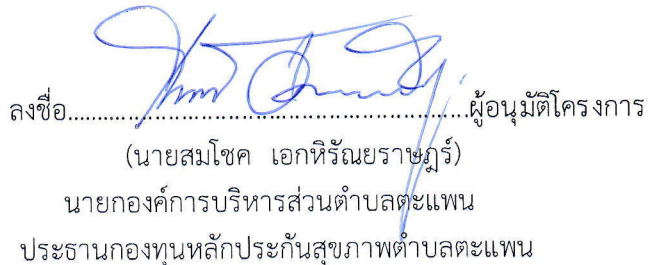 ลงชื่อ............................................................ผู้อนุมัติโครงการ
(นายสมโชค เอกหิรัณยราษฎร์)
นายกองค์การบริหารส่วนตำบลตะแพน
ประธานกองทุนหลักประกันสุขภาพตำบลตะแพน